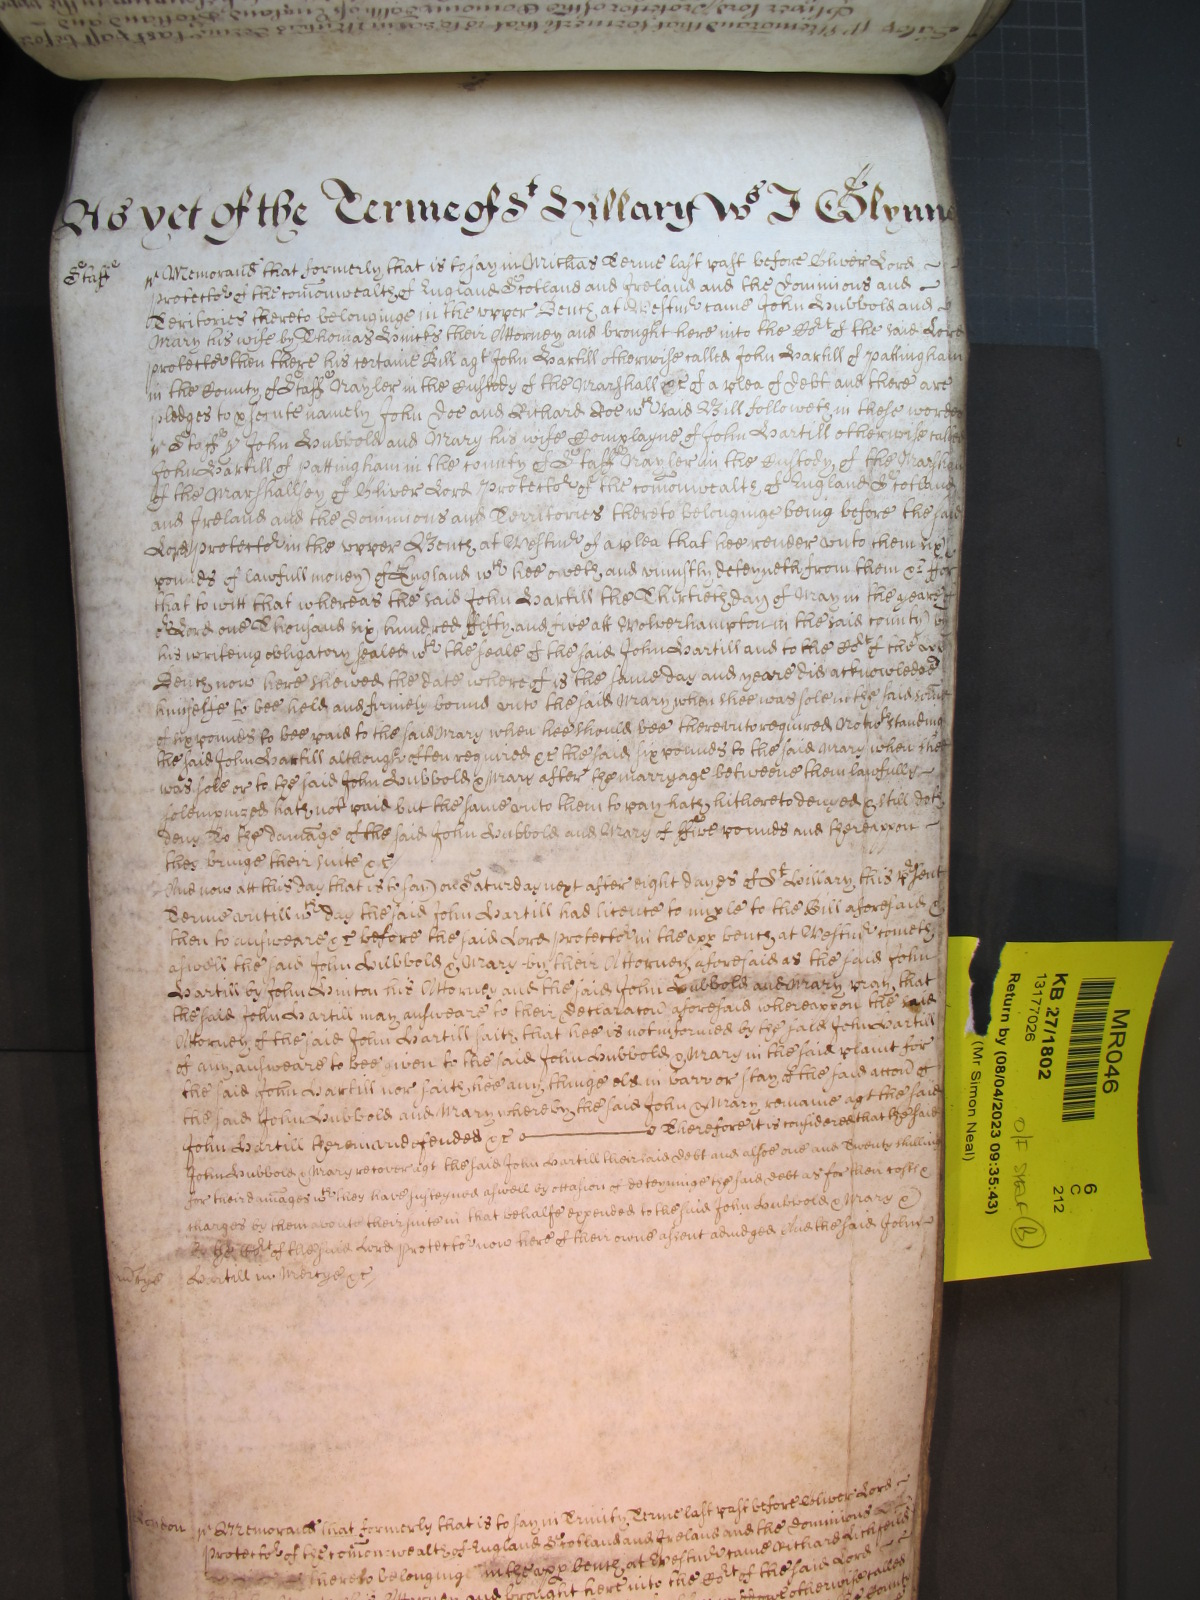 As yet of the Terme of St Hillary Ws J Glynne
Staff
Memorand that formerly that is to say in Michas Terme last past before Oliver Lord
Protector of the comonwealth of England Scotland and Ireland and the Dominions and
Territories thereto belonginge in the upper Bench at Westmr came John Hubbold and
Mary his wife by Thomas their Attorney and brought here into the Cort of the said Lord
Protector then there his certaine Bill agt John Hartill otherwise called John Hartill of Pattingham
in the County of Staff Nayler in the Custody of the Marshall &c of a plea of Debt and there are
pledges to psecute namely John Doe and Richard Roe wch said Bill followeth in these words
Staff John Hubbold and Mary his wife Complayne of John Hartill otherwise called
John Hartill of Pattingham in the county of Staff Nayler in the Custody of the Marshall
of the Marshallsey of Oliver Lord Protector of the comonwealth of England Scotland
and Ireland and the Dominions and Territories thereto belonginge being before the said
Lord Protector in the upper Bench at Westmr of a plea that hee render unto them six
pounds of lawfull money of England wch hee oweth and uniustly deteyneth from them &c For
that to witt that whereas the said John Hartill the Thirtieth day of May in the yeare of
or Lord one Thousand six hundred fifty and five att Wolverhampton in the said county by
his writeing obligatory sealed wth the seale of the said John Hartill and to the Cort of the upp
Bench now here shewed the date whereof is the same day and yeare did acknowledge
himselfe to bee held and firmely bound unto the said Mary when shee was sole in the said
of six pounds to bee paid to the said Mary when hee should bee thereunto required Notwthstanding
the said John Hartill although often required &c the said six pounds to the said Mary when shee
was sole or to the said John Hubbold & Mary after the marryage betweene them lawfully
solempnized hath not paid but the same unto them to pay hath hitherto denyed & still doth
deny To the damage of the said John Hubbold and Mary of ffive pounds and thereuppon
they bringe their suite &c
And now att this day that is to say on Saturday next after eight dayes of St Hillary this psent
Terme untill wch day the said John Hartill had licence to imple to the Bill aforesaid &
then to answeare &c before the said Lord Protector in the upp bench at Westmr cometh
aswell the said John Hubbold & Mary by their Attorney aforesaid as the said John
Hartill by John Hinton his Attorney and the said John Hubbold and Mary pray that
the said John Hartill may answeare to their declaracon aforesaid whereuppon the said
Attorney of the said John Hartill saith that hee is not informed by the said John Hartill
of any answeare to bee given to the said John Hubbold & Mary in the said plaint for
the said John Hartill nor saith hee any thinge els in barr or stay of the said accon of
the said John Hubbold and Mary whereby the said John & Mary remaine agt the said
John Hartill undefended &c Therefore it is considered that the said
John Hubbold & Mary recover agt the said John Hartill their said debt and alsoe one and Twenty shillings
for their damages wch they have susteyned aswell by occasion of deteyninge the said debt as for their costs &
charges by them about their suite in that behalfe expended to the said John Hubbold & Mary
by the Cort of the said Lord Protector now here of their owne assent adiudged And the said John
Hartill in Mercye &c
London
Memorand that formerly that is to say in Trinity Terme last past before Oliver Lord
Protector of the comonwealth of England Scotland and Ireland and the Dominions
thereto belonging in the upp bench at Westmr came Richard Lichfeild
Attorney and brought here into the Cort of the said Lord
otherwise called
MR046
KB 27/1802
13177026
Return by (08/04/2023 09:35:43)
(Mr Simon Neal)
6
C
212
O/F Shelf (B)